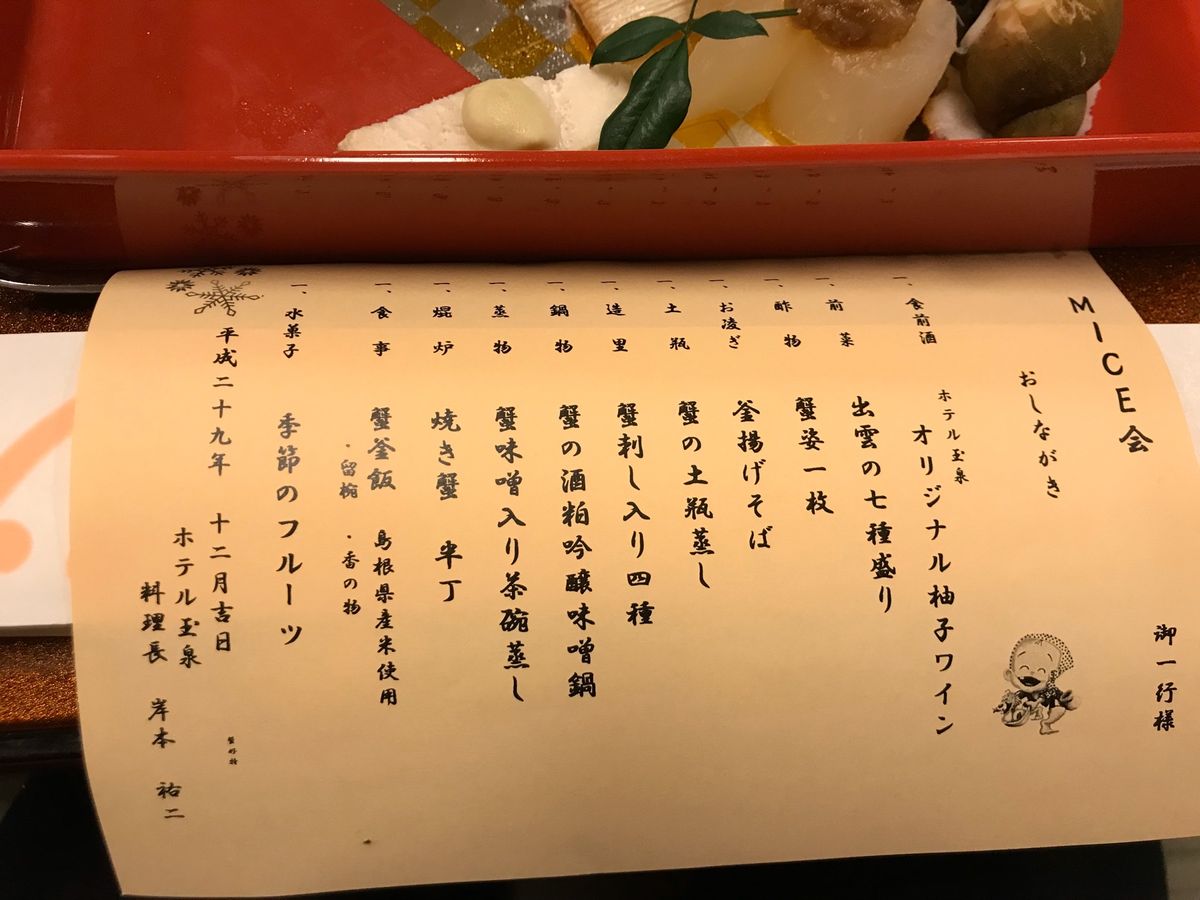 MICE会
御一行様
おしながき
一、食前酒 ホテル玉泉 オリジナル柚子ワイン
一、前菜 出雲の七種盛り
一、酢物 蟹姿一枚
一、お凌ぎ 釜揚げそば
一、土瓶 蟹の土瓶蒸し
一、造里 蟹刺し入り四種
一、鍋物 蟹の酒粕吟醸味噌鍋
一、蒸物 蟹味噌入り茶碗蒸し
一、焜炉 焼き蟹 半丁
一、食事 蟹釜飯 島根県産米使用
・留椀 ・香の物
一、水菓子 季節のフルーツ
平成二十九年 十二月吉日
ホテル玉泉
料理長 岸本 祐二